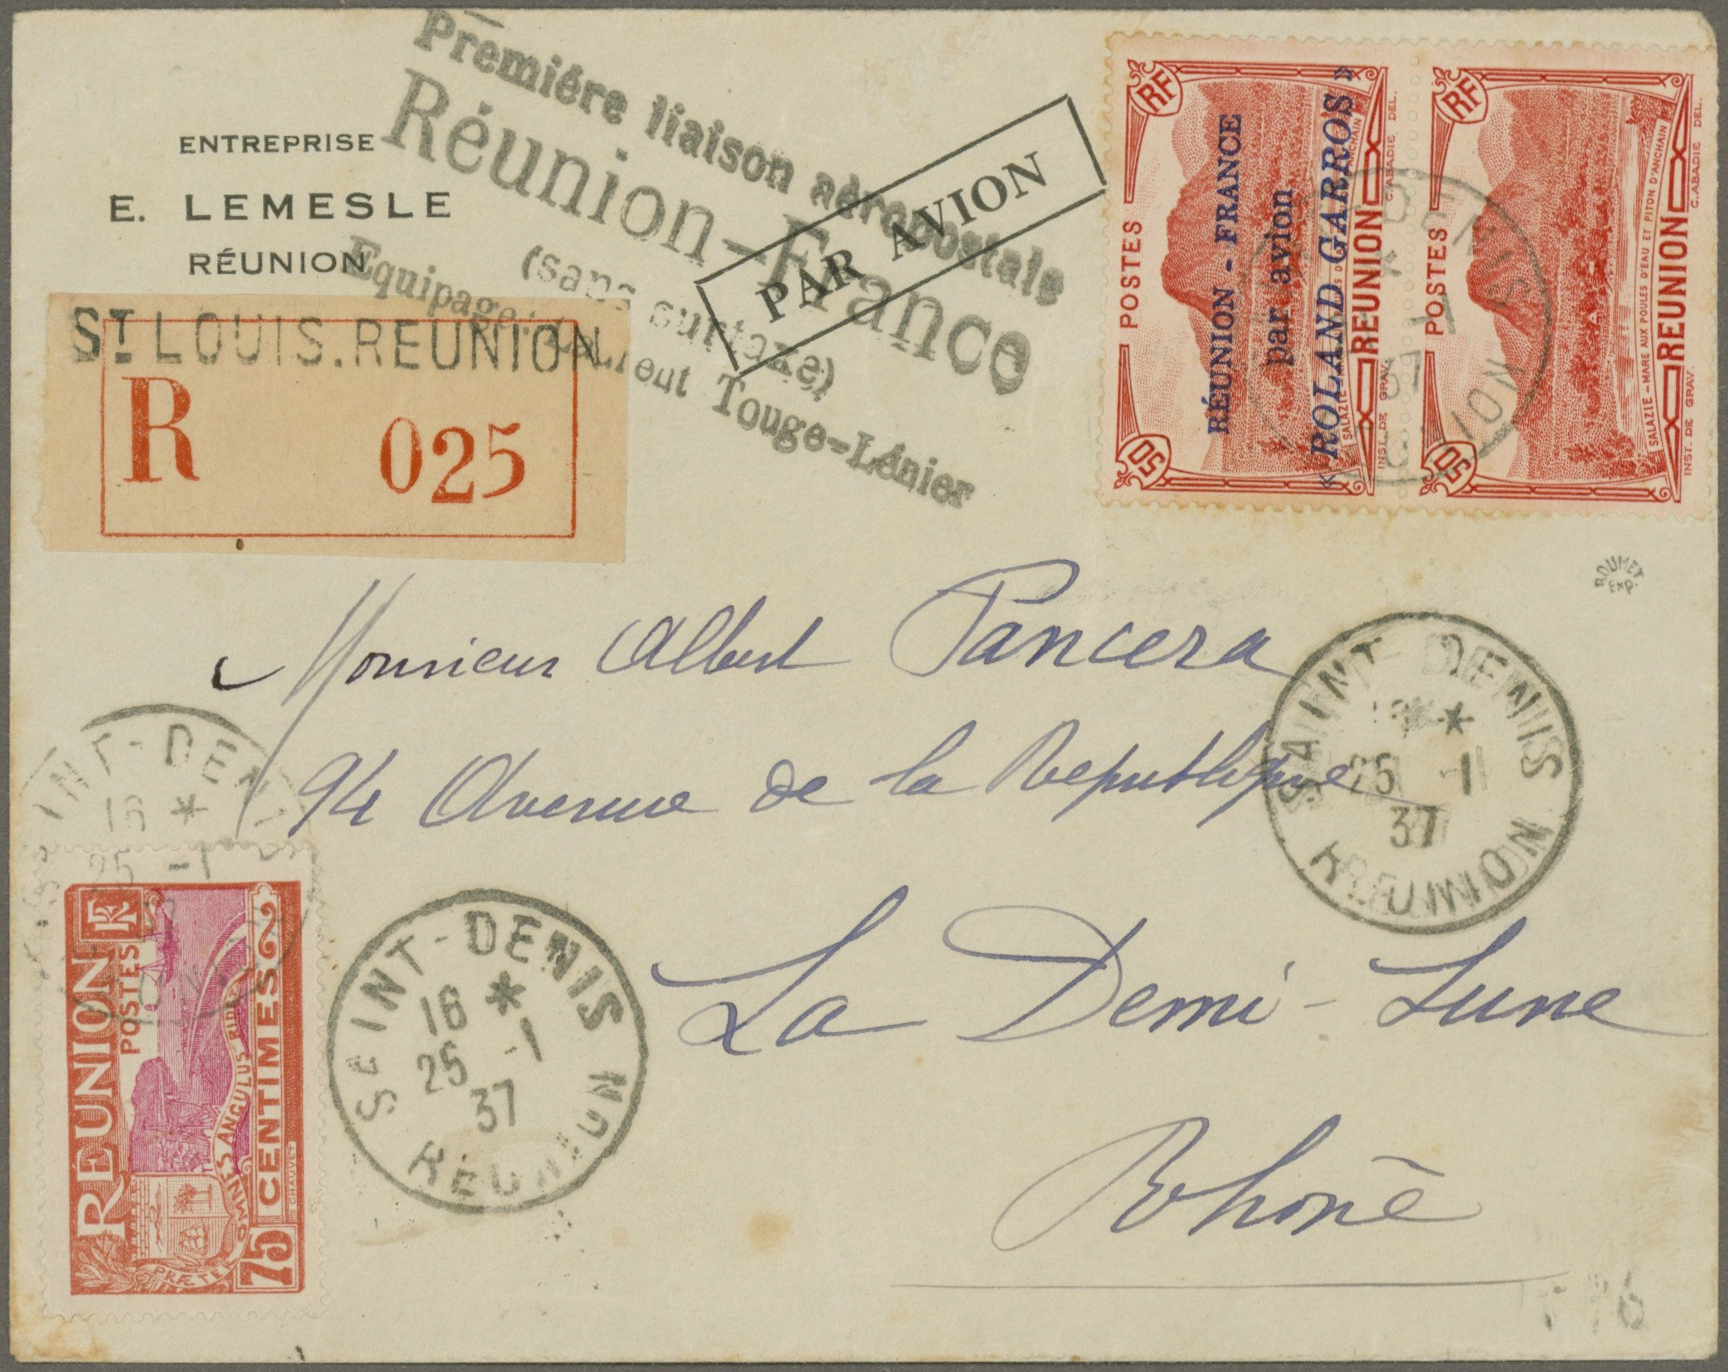 ENTREPRISE
E. LEMESLE
RÉUNION
Premiére liaison aéropostale
Réunion-France
(sans surtaxe)
Equipage: Laurent Touge-Lénier
PAR AVION
ST LOUIS.REUNION
R 025
RF
POSTES
50
RÉUNION - FRANCE
par avion
« ROLAND GARROS »
REUNION
INST. DE GRAV. C.ABADIE DEL.
RF
POSTES
50
SALAZIE-MARE AUX POULES D'EAU ET PITON D'ANCHAIN
REUNION
INST. DE GRAV. C.ABADIE DEL.
DENIS
ROUMET
EXP.
Monsieur Albert Pancera
94 Avenue de la Republique
La Demi-Lune
Rhône
SAINT-DENIS
25 -1
37
REUNION
SAINT-DENIS
16 *
25 -1
37
REUNION
INT-DENI
16 *
25 -1
RÉUNION
RF
POSTES
75 CENTIMES
OMNES ANGULUS RIDET
PRÆTER
CHAUVET